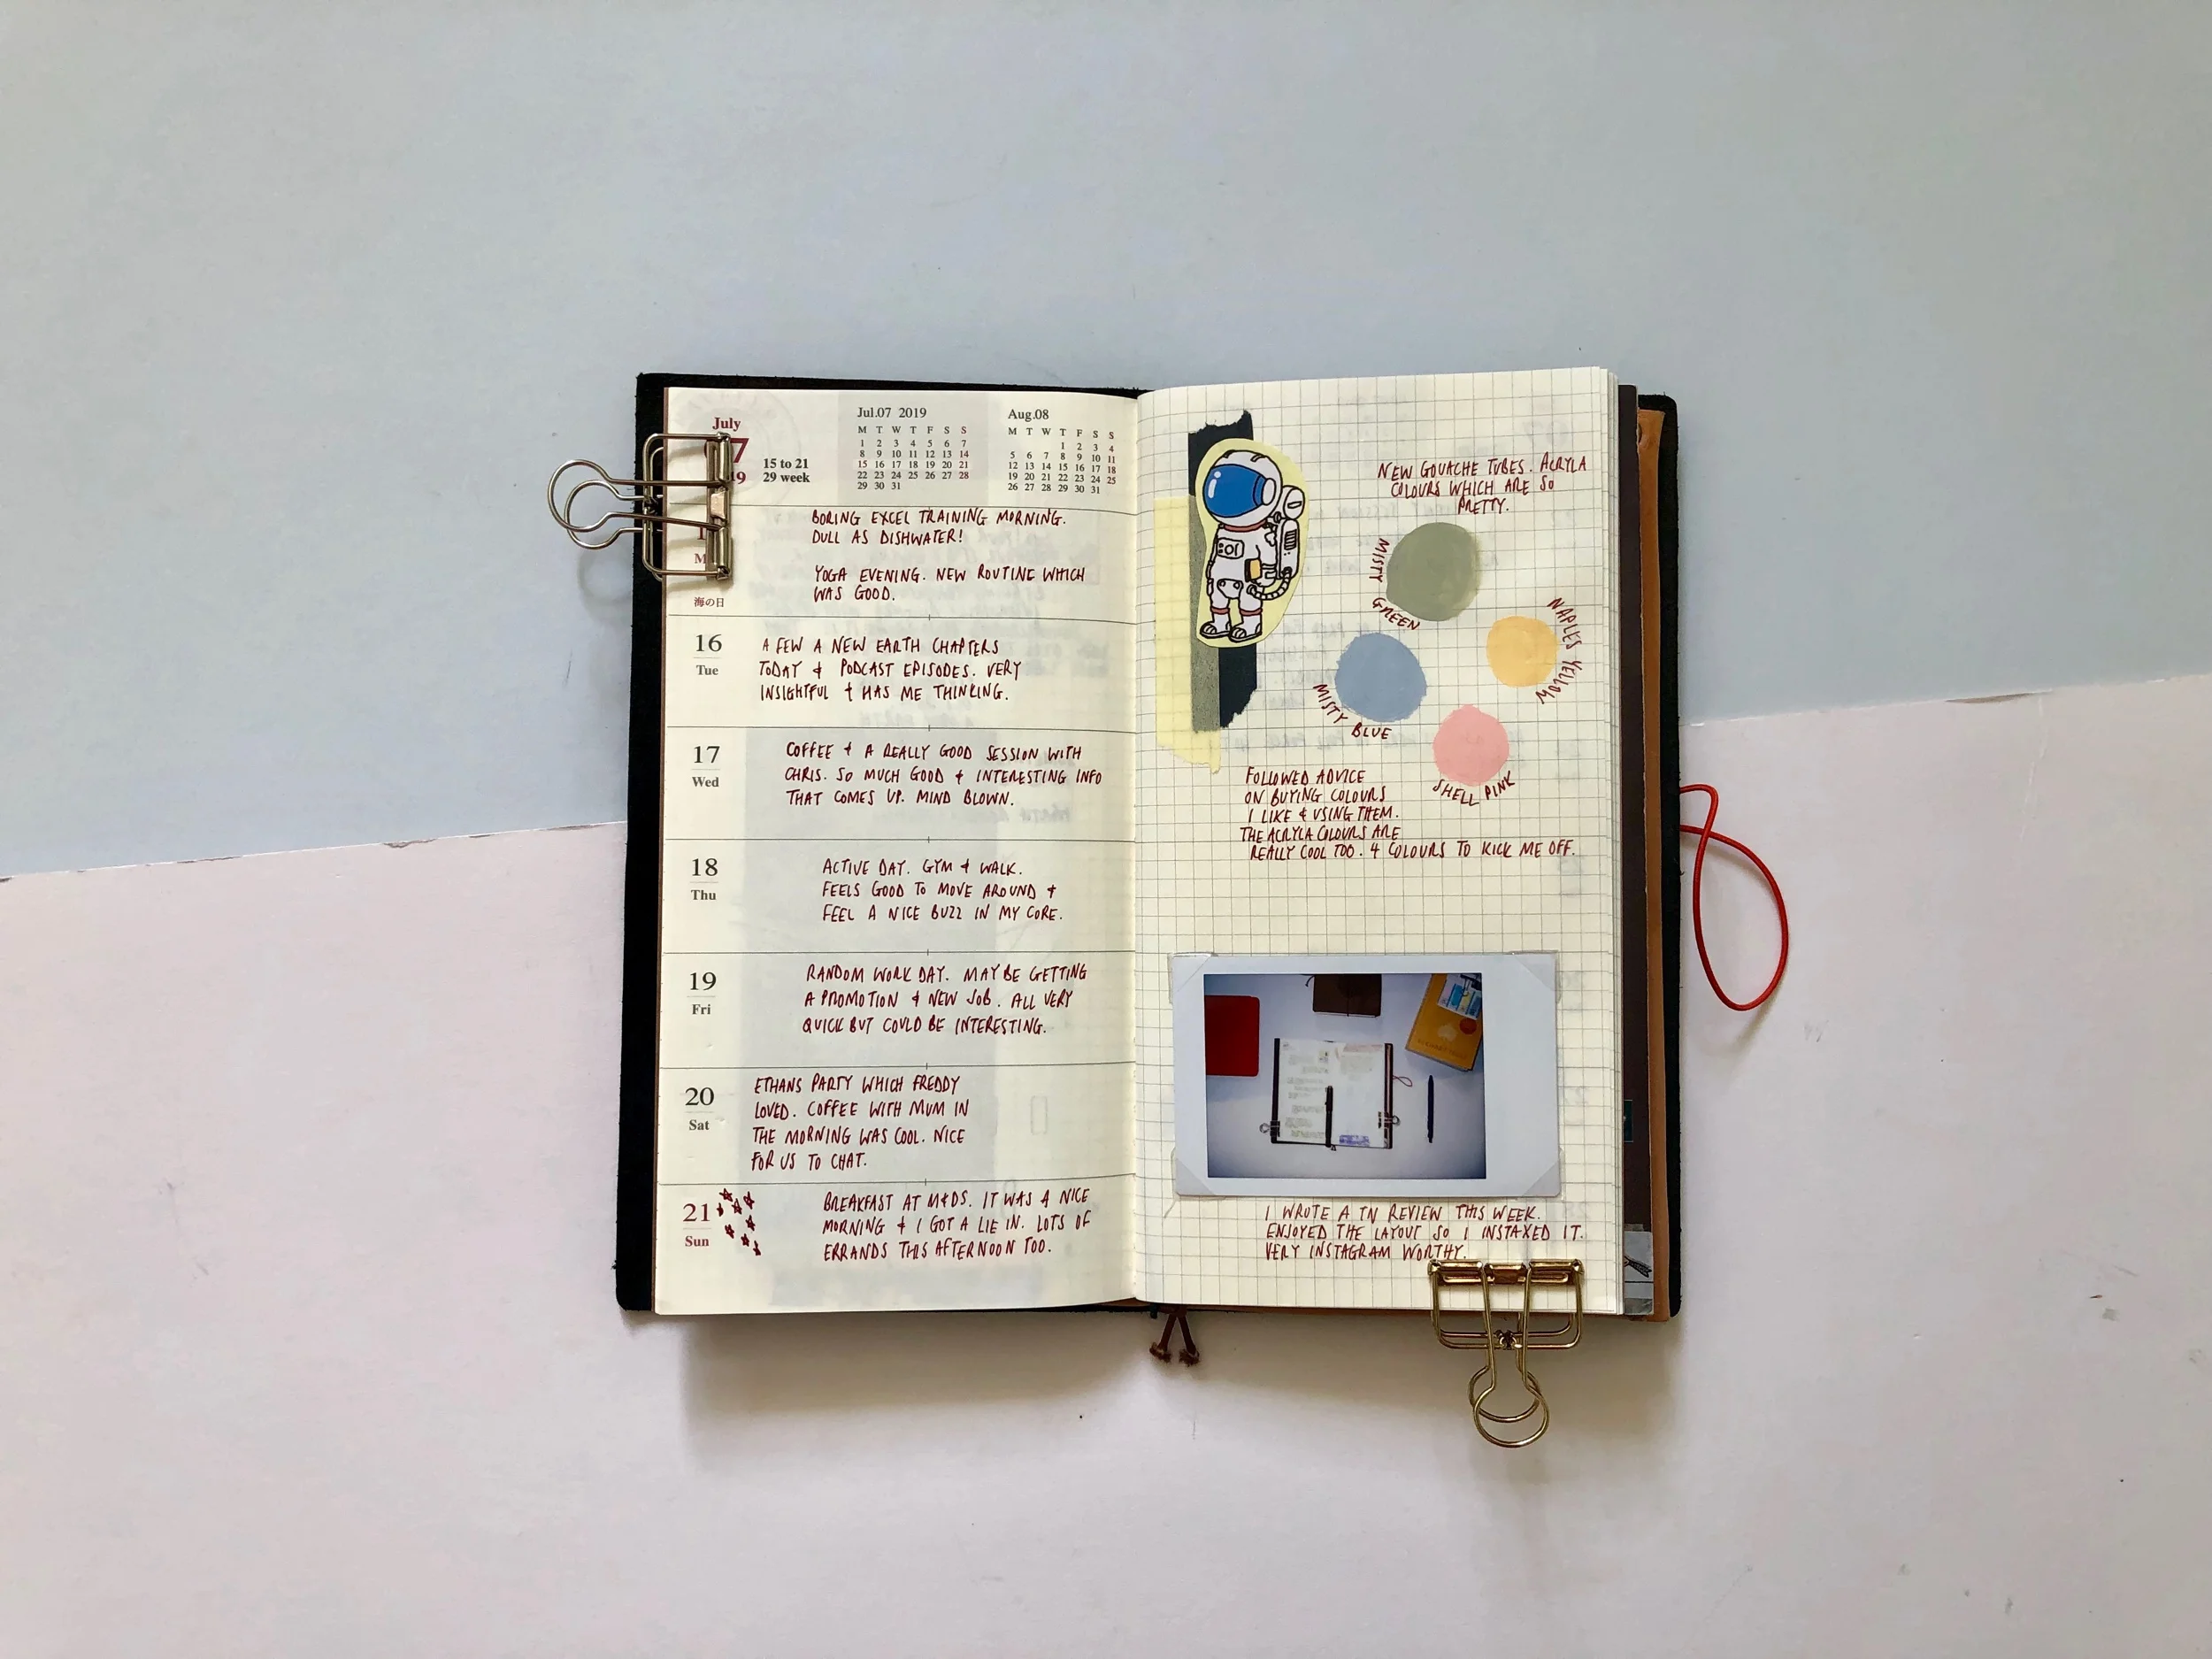 July
7
19
15 to 21
29 week
Jul.07 2019
M T W T F S S
1 2 3 4 5 6 7
8 9 10 11 12 13 14
15 16 17 18 19 20 21
22 23 24 25 26 27 28
29 30 31
Aug.08
M T W T F S S
1 2 3 4
5 6 7 8 9 10 11
12 13 14 15 16 17 18
19 20 21 22 23 24 25
26 27 28 29 30 31
海の日
BORING EXCEL TRAINING MORNING.
DULL AS DISHWATER!
YOGA EVENING. NEW ROUTINE WHICH
WAS GOOD.
16
Tue
A FEW A NEW EARTH CHAPTERS
TODAY & PODCAST EPISODES. VERY
INSIGHTFUL & HAS ME THINKING.
17
Wed
COFFEE & A REALLY GOOD SESSION WITH
CHRIS. SO MUCH GOOD & INTERESTING INFO
THAT COMES UP. MIND BLOWN.
18
Thu
ACTIVE DAY. GYM & WALK.
FEELS GOOD TO MOVE AROUND &
FEEL A NICE BUZZ IN MY CORE.
19
Fri
RANDOM WORK DAY. MAYBE GETTING
A PROMOTION & NEW JOB. ALL VERY
QUICK BUT COULD BE INTERESTING.
20
Sat
ETHANS PARTY WHICH FREDDY
LOVED. COFFEE WITH MUM IN
THE MORNING WAS COOL. NICE
FOR US TO CHAT.
21
Sun
BREAKFAST AT M&DS. IT WAS A NICE
MORNING & I GOT A LIE IN. LOTS OF
ERRANDS THIS AFTERNOON TOO.
NEW GOUACHE TUBES. ACRYLA
COLOURS WHICH ARE SO
PRETTY.
MISTY GREEN
NAPLES YELLOW
MISTY BLUE
SHELL PINK
FOLLOWED ADVICE
ON BUYING COLOURS
I LIKE & USING THEM.
THE ACRYLA COLOURS ARE
REALLY COOL TOO. 4 COLOURS TO KICK ME OFF.
I WROTE A TN REVIEW THIS WEEK.
ENJOYED THE LAYOUT SO I INSTAXED IT.
VERY INSTAGRAM WORTHY.